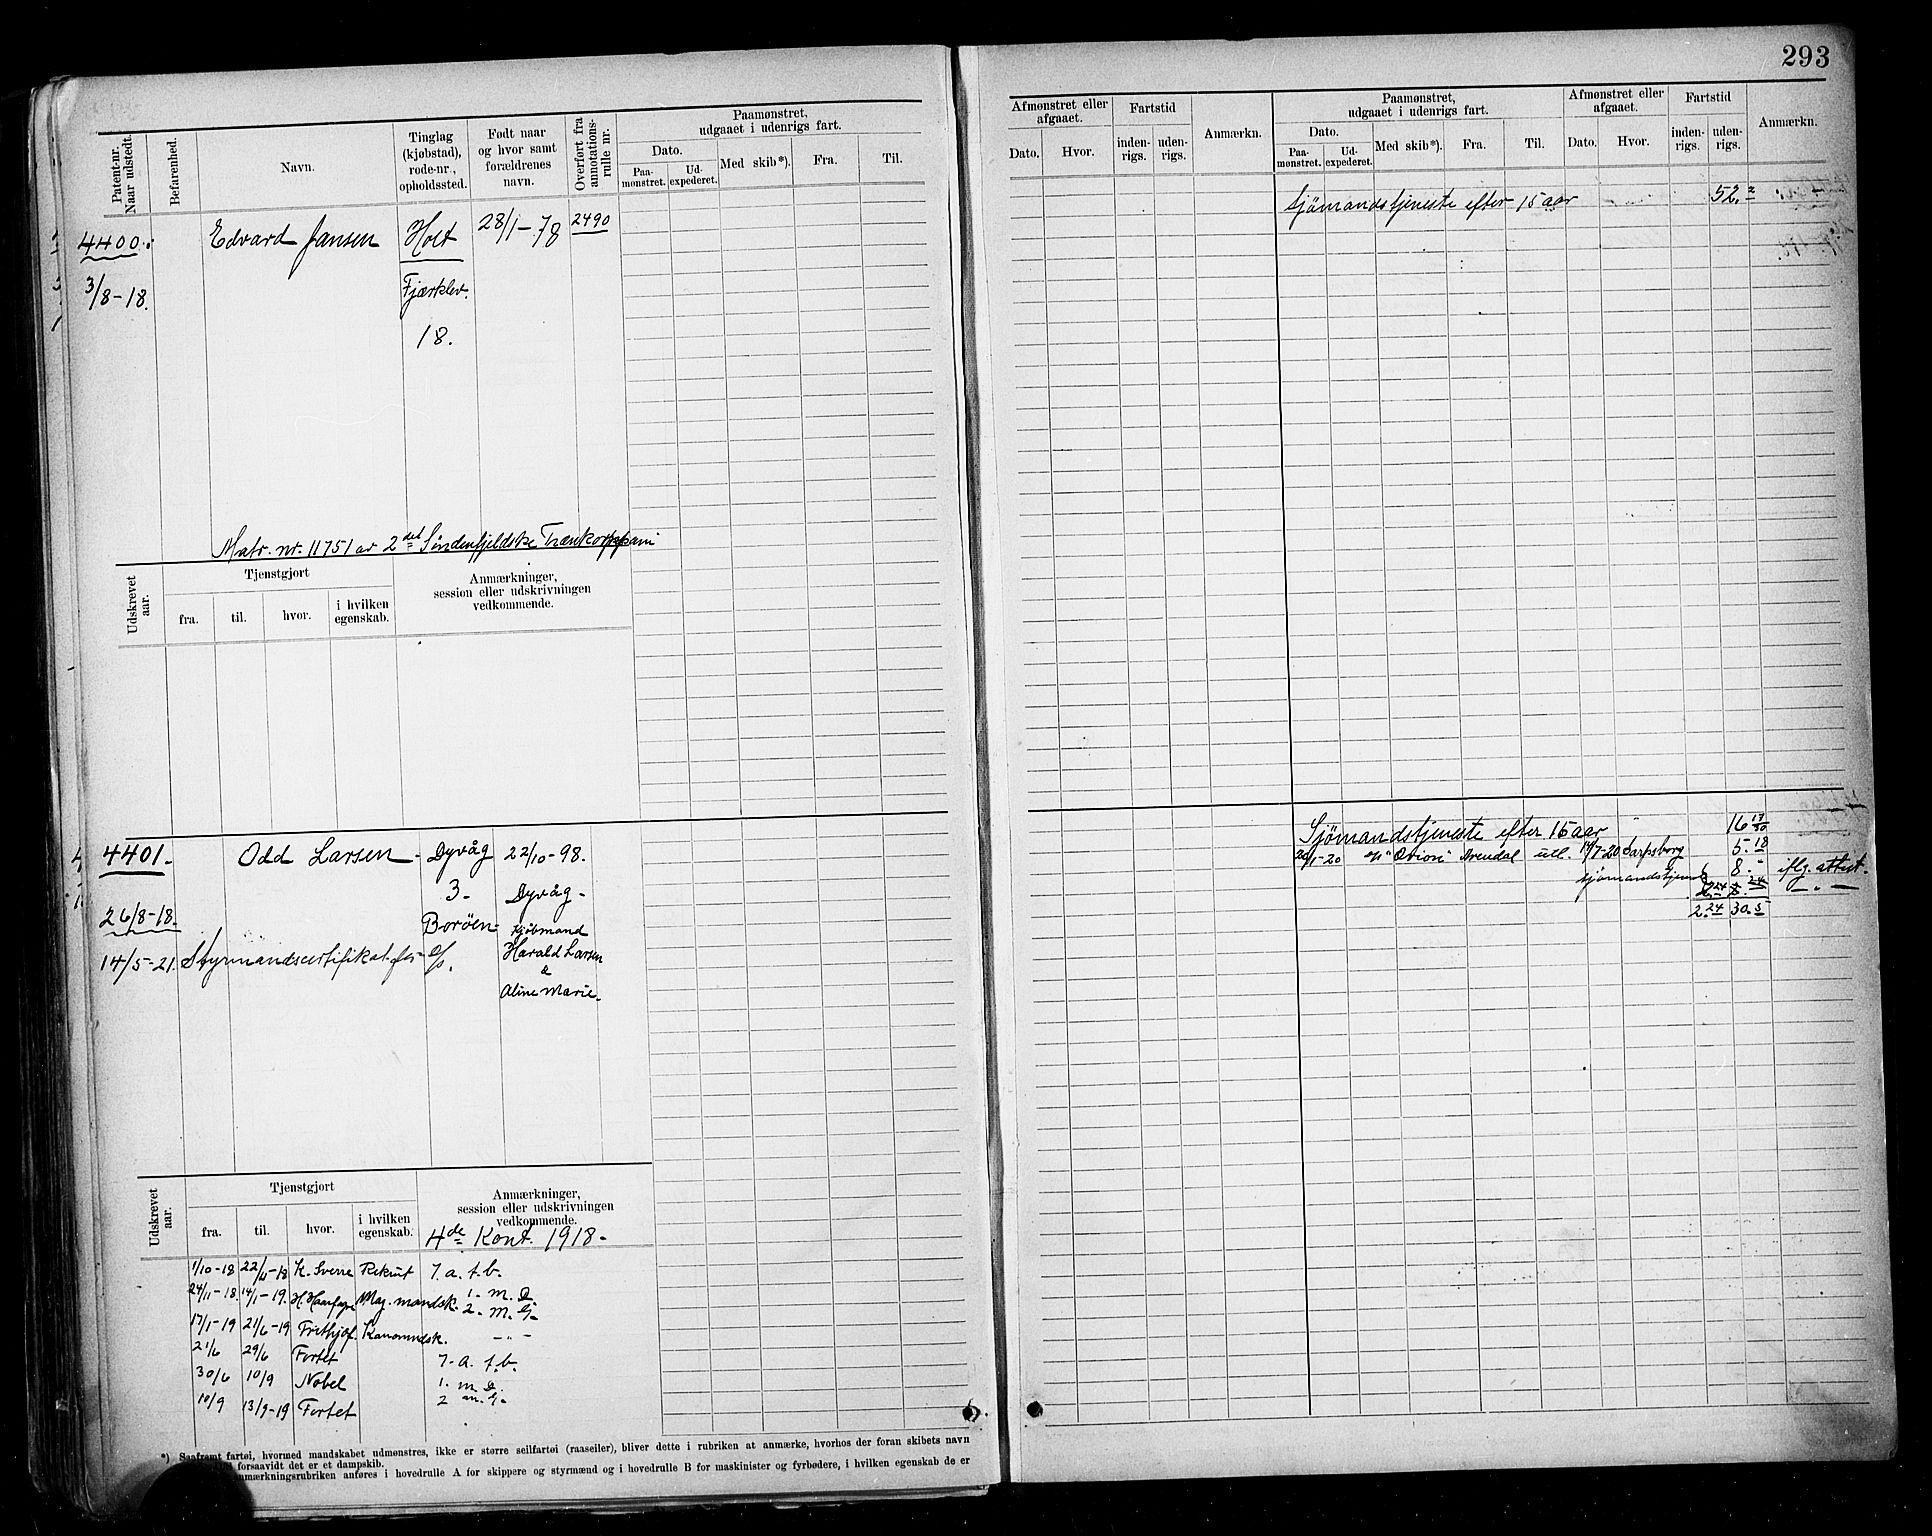 293
Patent-nr. Naar udstedt.
Befarenhed.
Navn.
Tinglag (kjøbstad), rode-nr., opholdssted.
Født naar og hvor samt forældrenes navn.
Overført fra annotations-rulle nr.
Paamønstret, udgaaet i udenrigs fart.
Dato.
Paa-mønstret.
Ud-expederet.
Med skib*).
Fra.
Til.
Afmønstret eller afgaaet.
Dato.
Hvor.
Fartstid
inden-rigs.
uden-rigs.
Anmærkn.
Paamønstret, udgaaet i udenrigs fart.
Dato.
Paa-mønstret.
Ud-expederet.
Med skib*).
Fra.
Til.
Afmønstret eller afgaaet.
Dato.
Hvor.
Fartstid
inden-rigs.
uden-rigs.
Anmærkn.
4400.
Edvard Jansen
Holt
28/1-78
2490
3/8-18.
Fjærklev.
18.
Sjømandstjeneste efter 15 aar
52.
Matr. nr. 11751 av 2det Søndenfjeldske Trænkompani
Udskrevet aar.
Tjenstgjort
fra.
til.
hvor.
i hvilken egenskab.
Anmærkninger, session eller udskrivningen vedkommende.
4401.
Odd Larsen
Dyvåg
22/10-98.
3-
Dyvåg-
26/8-18.
Borøen-
kjøbmand
14/5-21.
Styrmandscertifikat for
Harald Larsen
&
Aline Marie.
Sjømandstjeneste efter 15 aar
16 17/30
20/1-20
"Orion" Arendal utl. 14/7-20 Sarpsborg
5.18
sjømandstjen
8.-
iflg. attest.
2.24 30.5
Udskrevet aar.
Tjenstgjort
fra.
til.
hvor.
i hvilken egenskab.
Anmærkninger, session eller udskrivningen vedkommende.
4de Kont. 1918-
1/10-18 22/11-18 K. Sverre Rekrut 7. a. f. b.
24/11-18. 14/1-19. H. Haarfagre Mag. mandsk. 1. m. D.
2. m. G-
17/1-19 21/6-19 Frithjof. Kanonmdsk. -"-
21/6 29/6 Fortet 7. a. f. b.
30/6 10/9 Nobel 1. m. D.
10/9 13/9-19 Fortet 2 m. G-
*) Saafremt fartøi, hvormed mandskabet udmønstres, ikke er større seilfartøi (raaseiler), bliver dette i rubriken at anmærke, hvorhos der foran skibets navn
forsaavidt det er et dampskib.
anmærkningsrubriken anføres i hovedrulle A for skippere og styrmænd og i hovedrulle B for maskinister og fyrbødere, i hvilken egenskab de er